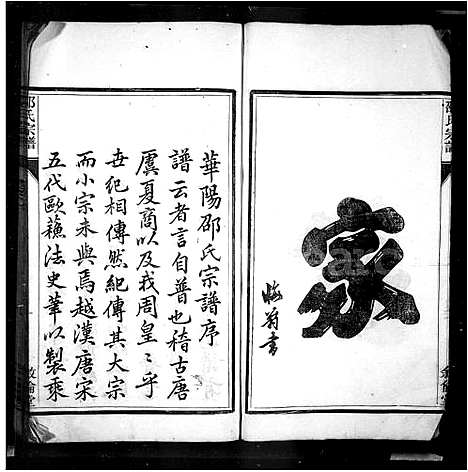 家
華陽邵氏宗譜序
譜云者言自普也稽古唐
虞夏商以及我周皇皇乎
世紀相傳然紀傳其大宗
而小宗未與焉越漢唐宋
五代歐蘓法史筆以製乘
邵氏宗譜
敘倫堂